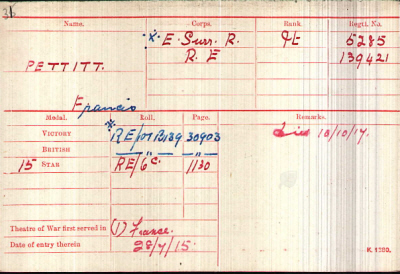 Name. Corps. Rank. Regtl. No.
* E. Surr. R. Pte 5285
PETTITT. R. E 139421
Francis
Medal. Roll. Page. Remarks.
VICTORY * RE/101B189 30903 Died 18/10/17.
BRITISH " "
15 STAR RE/6 C. 1130
Theatre of War first served in (1) France.
Date of entry therein 28/7/15. K. 1380.